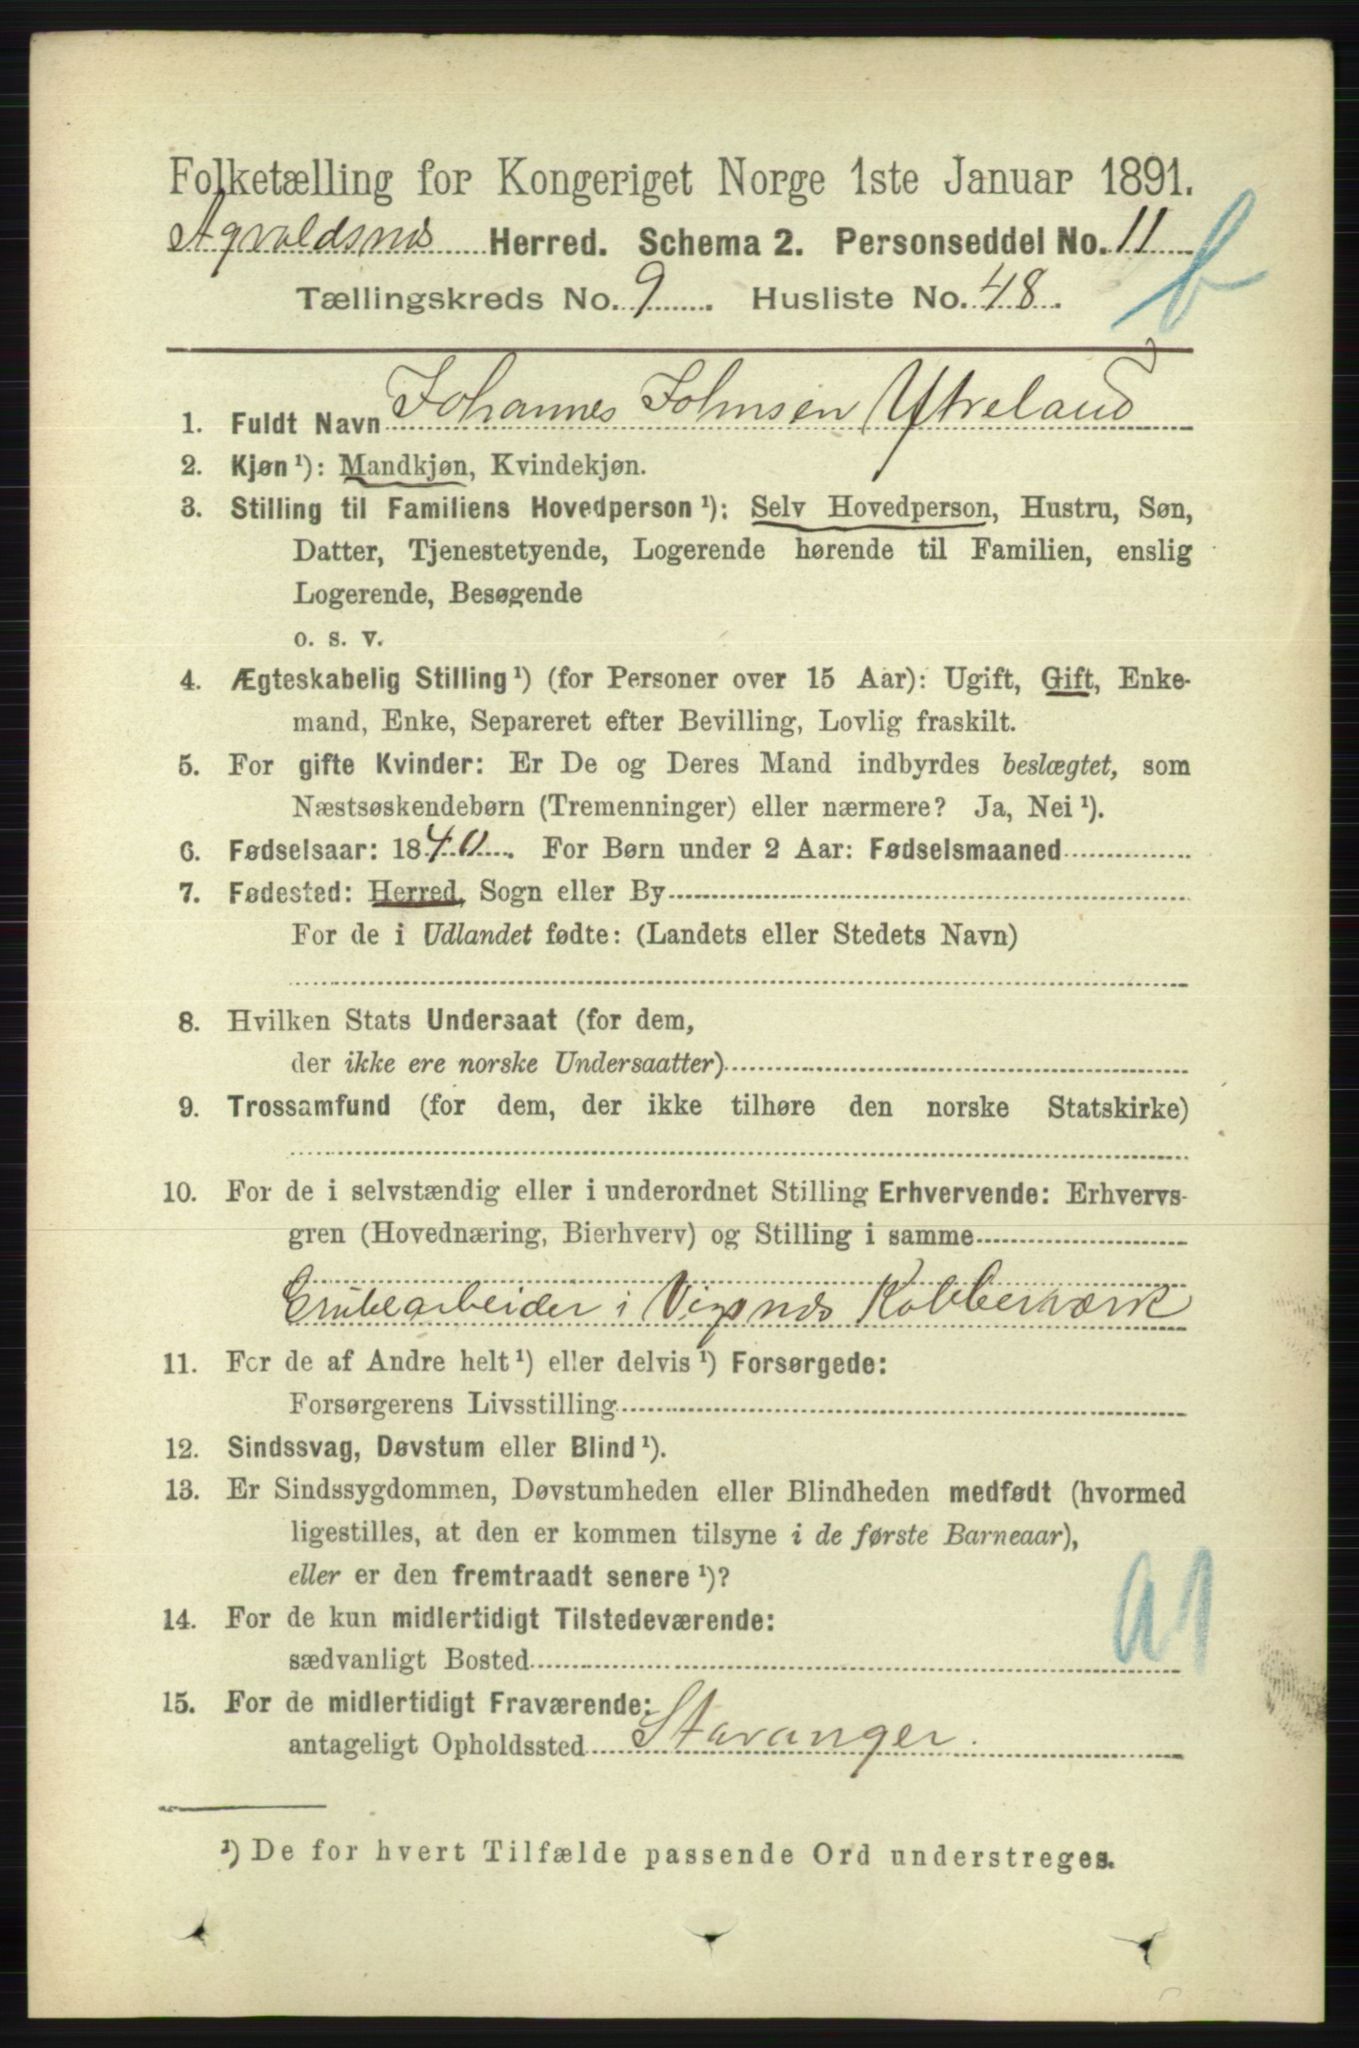 Folketælling for Kongeriget Norge 1ste Januar 1891.
Agvaldsnes Herred. Schema 2. Personseddel No. 11
b
Tællingskreds No. 9. Husliste No. 48.
1. Fuldt Navn Johannes Johnsen Ytreland
2. Kjøn ¹): Mandkjøn, Kvindekjøn.
3. Stilling til Familiens Hovedperson ¹): Selv Hovedperson, Hustru, Søn,
Datter, Tjenestetyende, Logerende hørende til Familien, enslig
Logerende, Besøgende
o. s. v.
4. Ægteskabelig Stilling ¹) (for Personer over 15 Aar): Ugift, Gift, Enke-
mand, Enke, Separeret efter Bevilling, Lovlig fraskilt.
5. For gifte Kvinder: Er De og Deres Mand indbyrdes beslægtet, som
Næstsøskendebørn (Tremenninger) eller nærmere? Ja, Nei ¹).
6. Fødselsaar: 1840. For Børn under 2 Aar: Fødselsmaaned
7. Fødested: Herred, Sogn eller By
For de i Udlandet fødte: (Landets eller Stedets Navn)
8. Hvilken Stats Undersaat (for dem,
der ikke ere norske Undersaatter)
9. Trossamfund (for dem, der ikke tilhøre den norske Statskirke)
10. For de i selvstændig eller i underordnet Stilling Erhvervende: Erhvervs-
gren (Hovednæring, Bierhverv) og Stilling i samme
Grubearbeider i Vigsnes Kobberværk
11. For de af Andre helt ¹) eller delvis ¹) Forsørgede:
Forsørgerens Livsstilling
12. Sindssvag, Døvstum eller Blind ¹).
13. Er Sindssygdommen, Døvstumheden eller Blindheden medfødt (hvormed
ligestilles, at den er kommen tilsyne i de første Barneaar),
eller er den fremtraadt senere ¹)?
14. For de kun midlertidigt Tilstedeværende:
sædvanligt Bosted
15. For de midlertidigt Fraværende:
antageligt Opholdssted Stavanger.
¹) De for hvert Tilfælde passende Ord understreges.